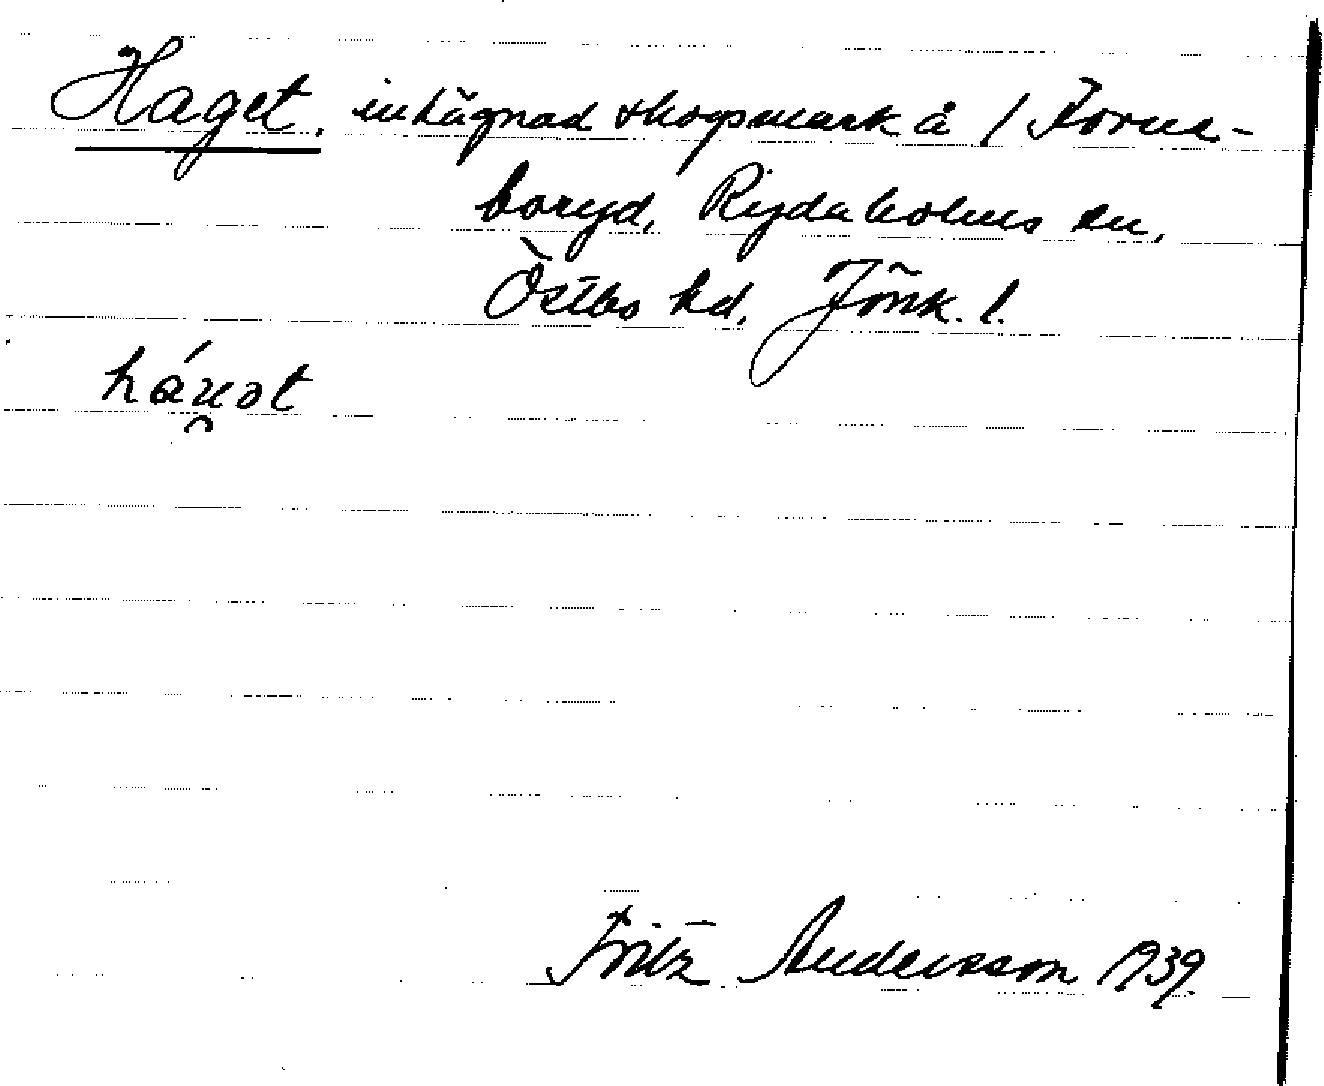 Haget, inhägnad skogsmark å / Forne-
boryd, Rydaholms sn,
Östbo hd, Jönk. l.
háu̯ot
Fritz Andersson 1939.